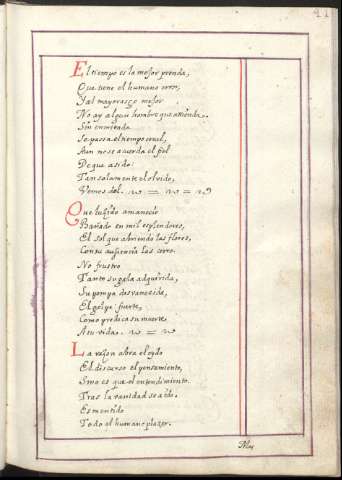 41
El tiempo es la mejor prenda,
Que tiene el humano error,
Y al mayorasgo mejor
No ay algun hombre que atienda.
Sin enmienda
Se passa el tiempo cruel,
Aun no se acuerda el fiel
De que a sido
Tan solamente el olvido,
Vemos del.
Que luzido amanecio
Bañado en mil esplendores,
El sol que abriendo las flores,
Con su ausencia las cerro.
No frustro
Tanto su gala adquirida,
Su pompa desvanecida,
El golpe fuerte,
Como predica su muerte
A su vida.
La razon abra el oydo
El discurso el pensamiento,
Sino es que el entendimiento
Tras la vanidad se a ido.
Es mentido
Todo el humano plazer.
Mas